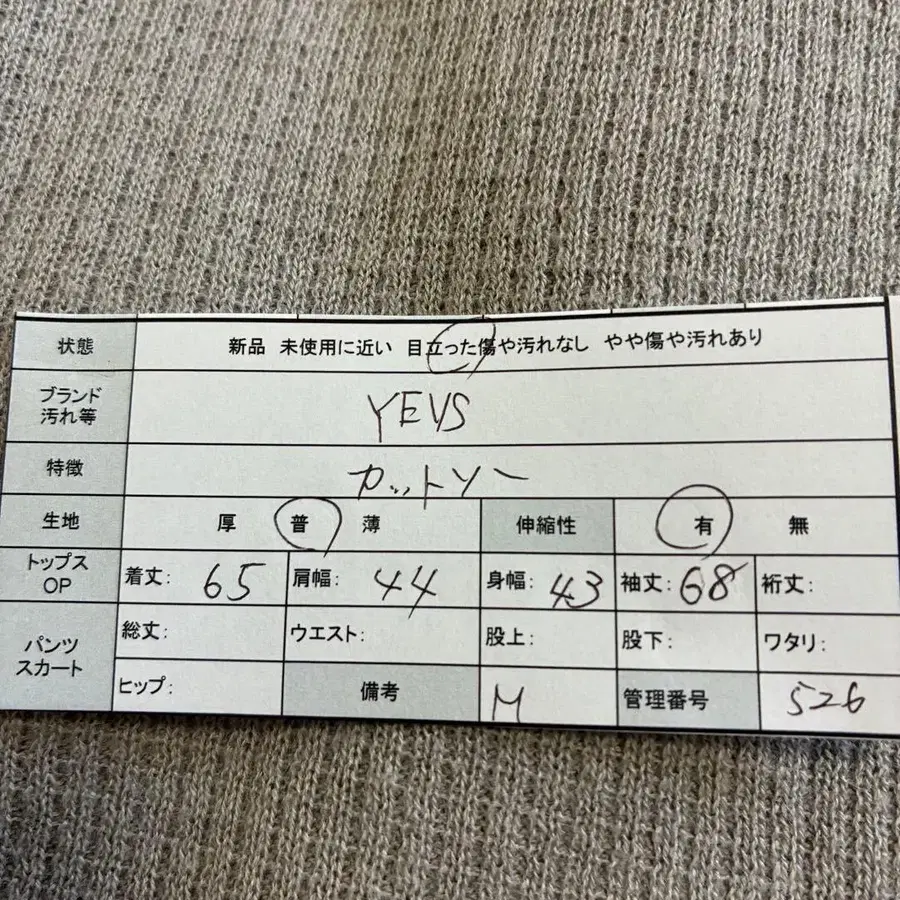 状態 新品 未使用に近い 目立った傷や汚れなし やや傷や汚れあり
ブランド
汚れ等
YEVS
特徴 カットソー
生地 厚 普 薄 伸縮性 有 無
トップス
OP
着丈: 65 肩幅: 44 身幅: 43 袖丈: 68 裄丈:
パンツ
スカート
総丈: ウエスト: 股上: 股下: ワタリ:
ヒップ: 備考 M 管理番号 526